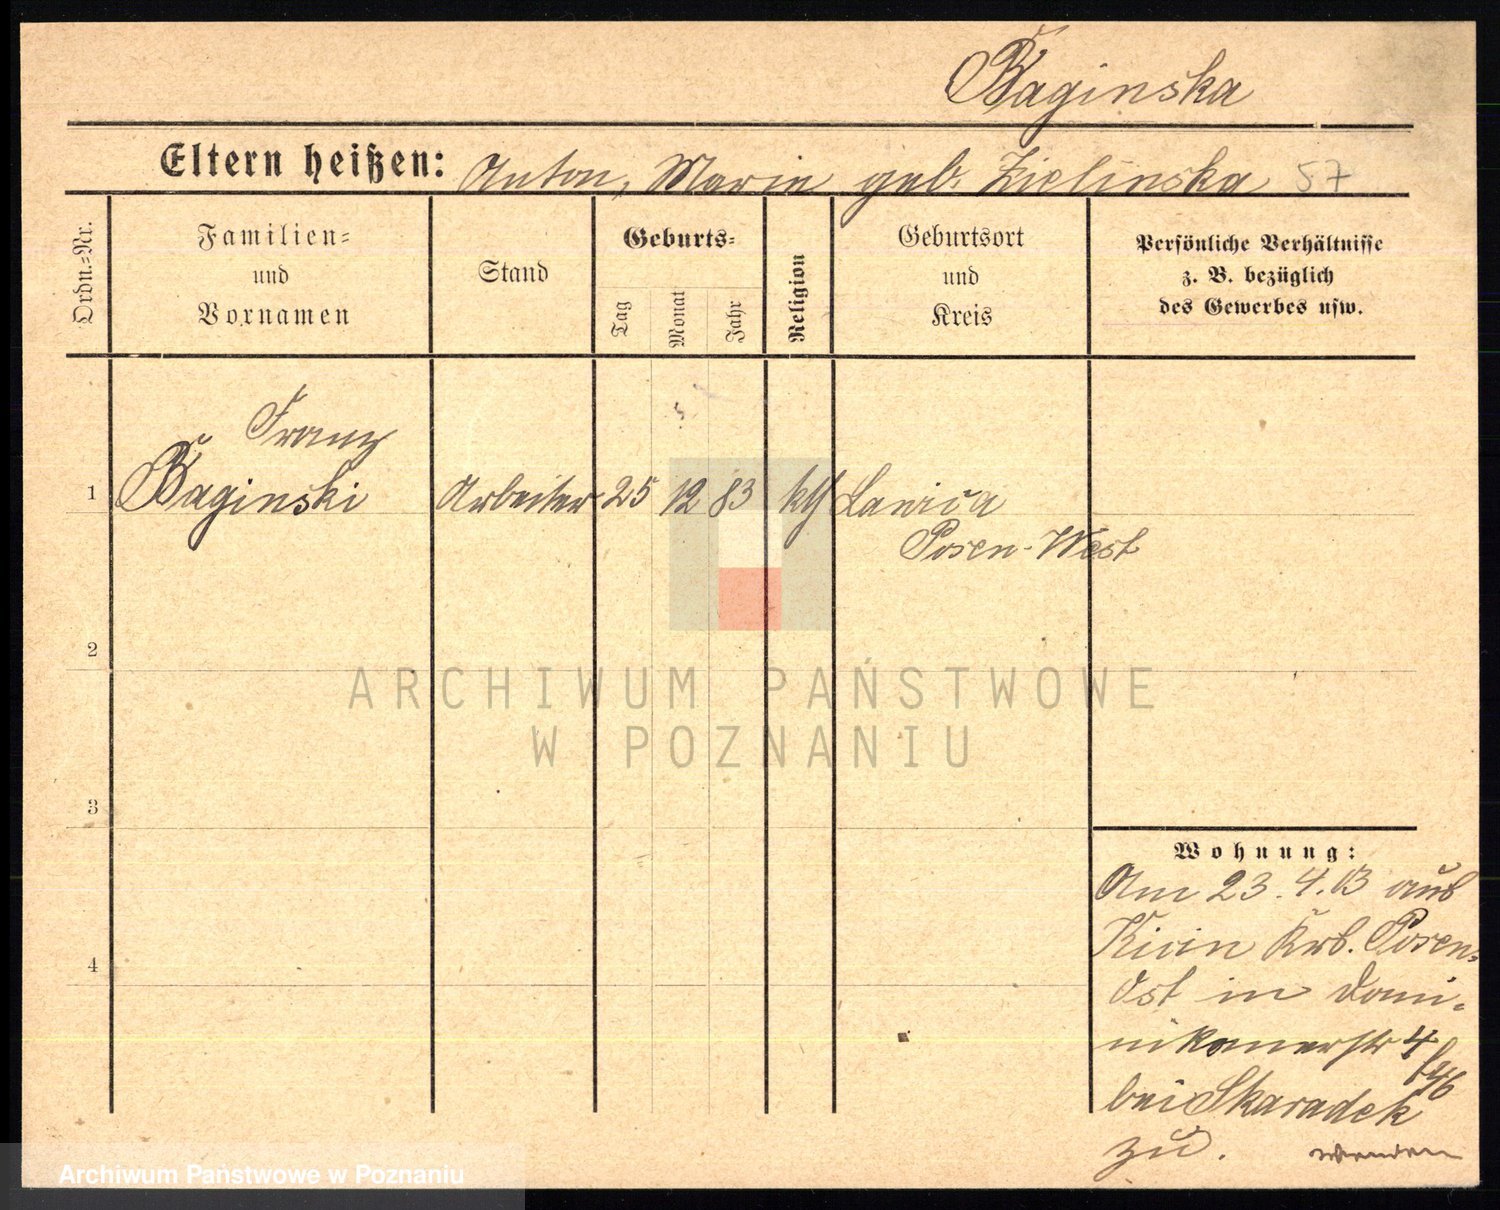 Baginska
Eltern heißen: Anton, Marie geb. Zielinska 57
Ordn.-Nr.
Familien-
und
Vornamen
Stand
Geburts-
Tag
Monat
Jahr
Religion
Geburtsort
und
Kreis
Persönliche Verhältnisse
z. B. bezüglich
des Gewerbes usw.
Franz
1 Baginski Arbeiter 25 12 83 kth Lawica
Posen-West
2
ARCHIWUM PAŃSTWOWE
W POZNANIU
3
Wohnung:
Am 23.4.03 aus
Krb. Posen-
4
Ost in Domi-
nikanerstr 4
bei Skaradek
zu. wenden
Archiwum Państwowe w Poznaniu